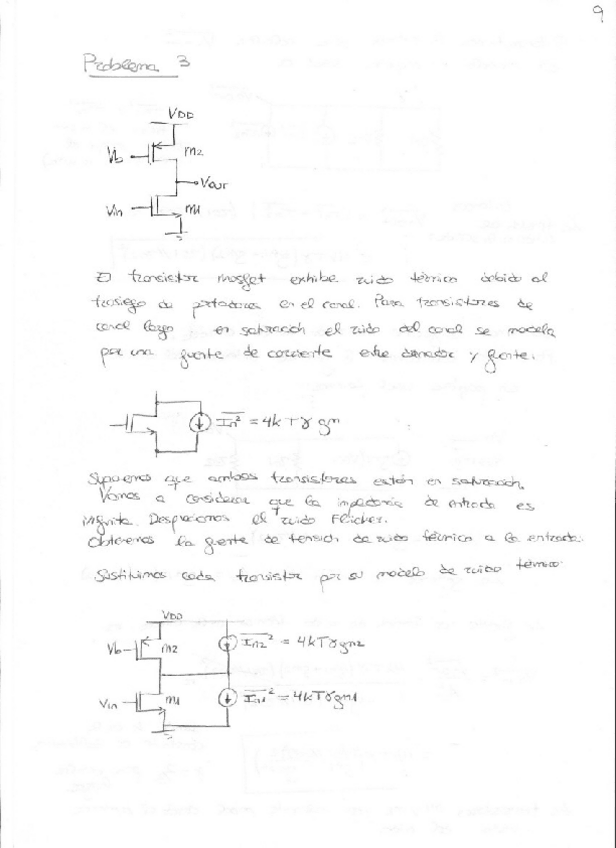 9
Problema 3
VDD
Vb
M2
Vout
Vin
M1
El transistor mosfet exhibe ruido térmico debido al
trasiego de portadores en el canal. Para transistores de
canal largo en saturación el ruido del canal se modela
por una fuente de corriente entre drenador y fuente.
In² = 4kTγgm
Suponemos que ambos transistores están en saturación.
Vamos a considerar que la impedancia de entrada es
infinita. Despreciamos el ruido Flicker.
Obtenemos la fuente de tensión de ruido térmico a la entrada.
Sustituimos cada transistor por su modelo de ruido térmico.
VDD
Vb
M2
In2² = 4kTγgm2
Vin
M1
In1² = 4kTγgm1